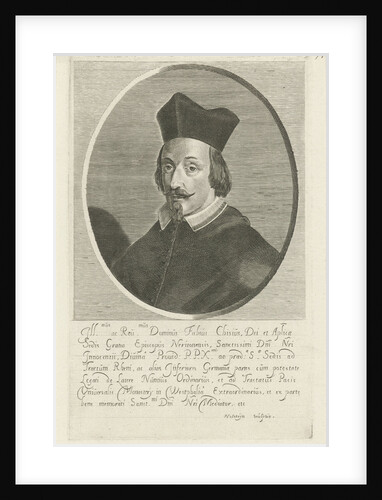 Ill.mus ac Reu.mus Dominus Fabius Chisius, Dei et Aplicæ
Sedis Gratia Episcopus Neritonensis, Sanctissimi Dni Nri
Innocentii, Diuina Prouid. P.P.X. ac præd. S. Sedis ad
Tractum Rheni, ac alias Inferioris Germaniæ partes cum potestate
Legati de Latere Nuntius Ordinarius, et ad Tractatus Pacis
Vniuersalis Monasterij in Westphalia Extraordinarius, et ex parte
eiusdem memorati Sanct.mi Dni Nri Mediator, etc